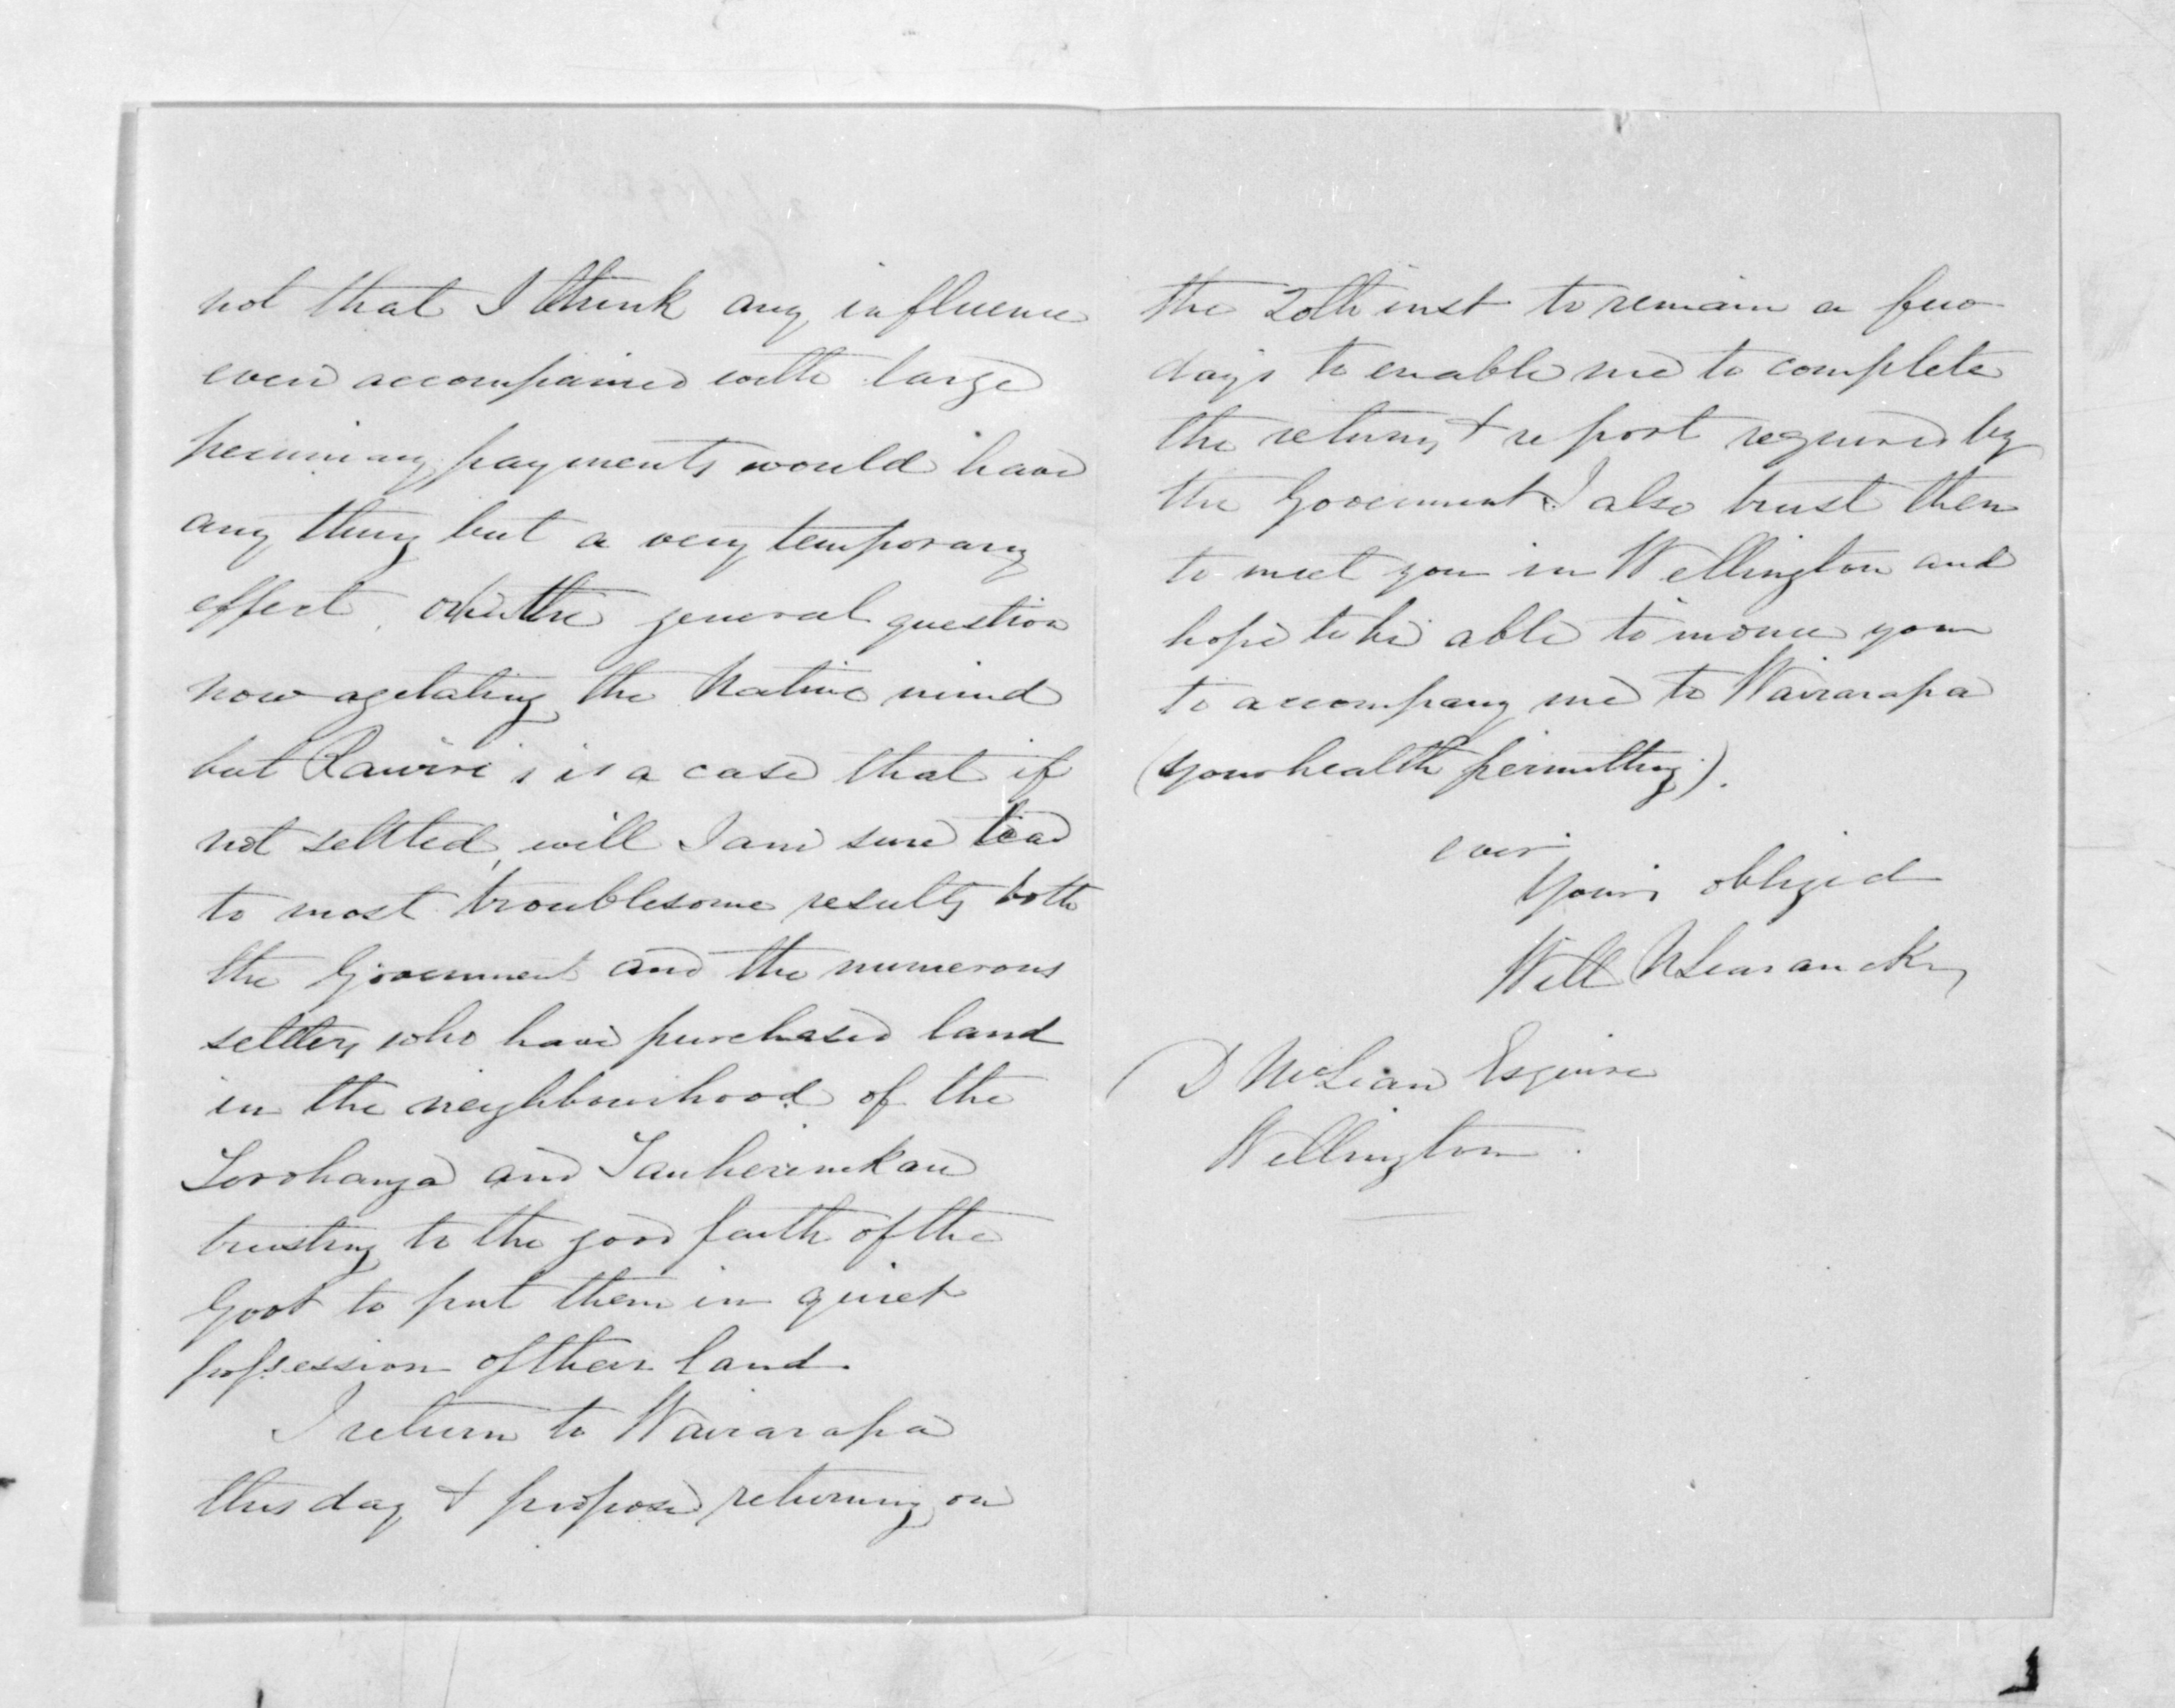 not that I think any influence
even accompained with large
pecuniary payments would have
any thing but a very temporary
effect, on the general question
now agetating the Native mind
but Rawiri's is a case that if
not settled, will I am sure lead
to most troublesome results both
the Government and the numerous
settlers who have purchased land
in the neighbourhood of the
Torohanga and Tauherenikau
trusting to the good faith of the
Govt to put them in quiet
possession of their land.
I return to Wairarapa
this day & propose returning on
the 20th inst to remain a few
days to enable me to complete
the returns & report required by
the Government. I also trust then
to meet you in Wellington and
hope to be able to induce you
to accompany me to Wairarapa
(your health permitting).
ever
Yours obliged
Will
D McLean Esquire
Wellington.